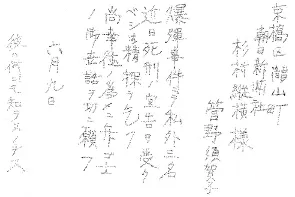 京橋区瀧山町
朝日新聞社
杉村縦横様
菅野須賀子
爆弾事件ニテ私外三名
近日死刑ノ宣告ヲ受ク
ベシ 精探ヲ乞フ
尚幸徳ノ為メニ弁ゴ士
ノ御世話ヲ切ニ願フ
六月九日
彼ハ何ニモ知ラヌノデス